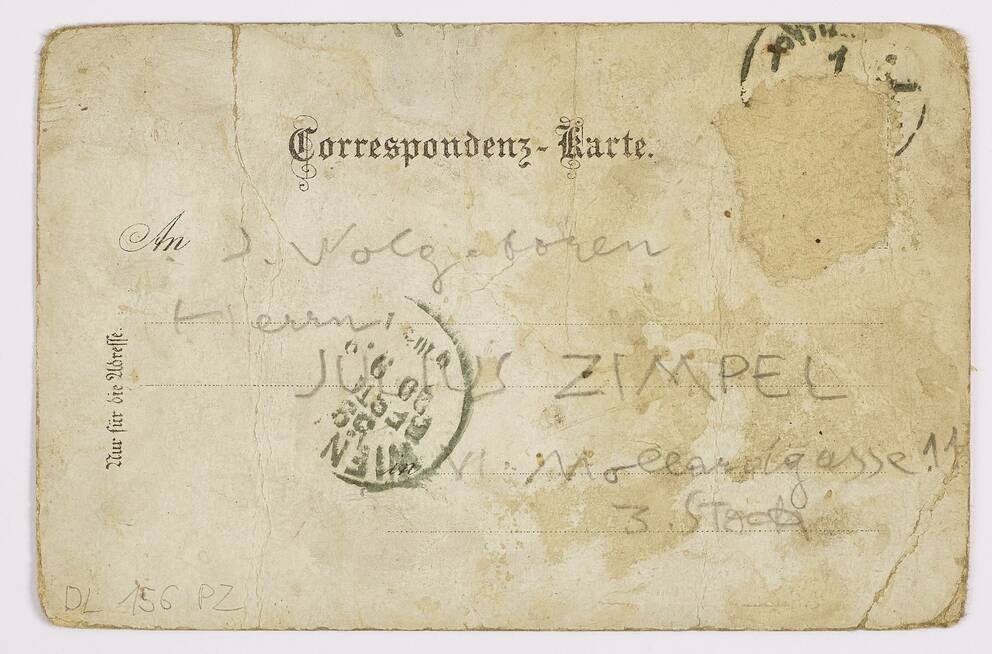 Correspondenz-Karte.
An
J. Wolgeboren
Herrn
JULIUS ZIMPEL
in VI. Mollardgasse 11
3. Stock
Nur für die Adresse.
WIEN
1
DL 156 PZ